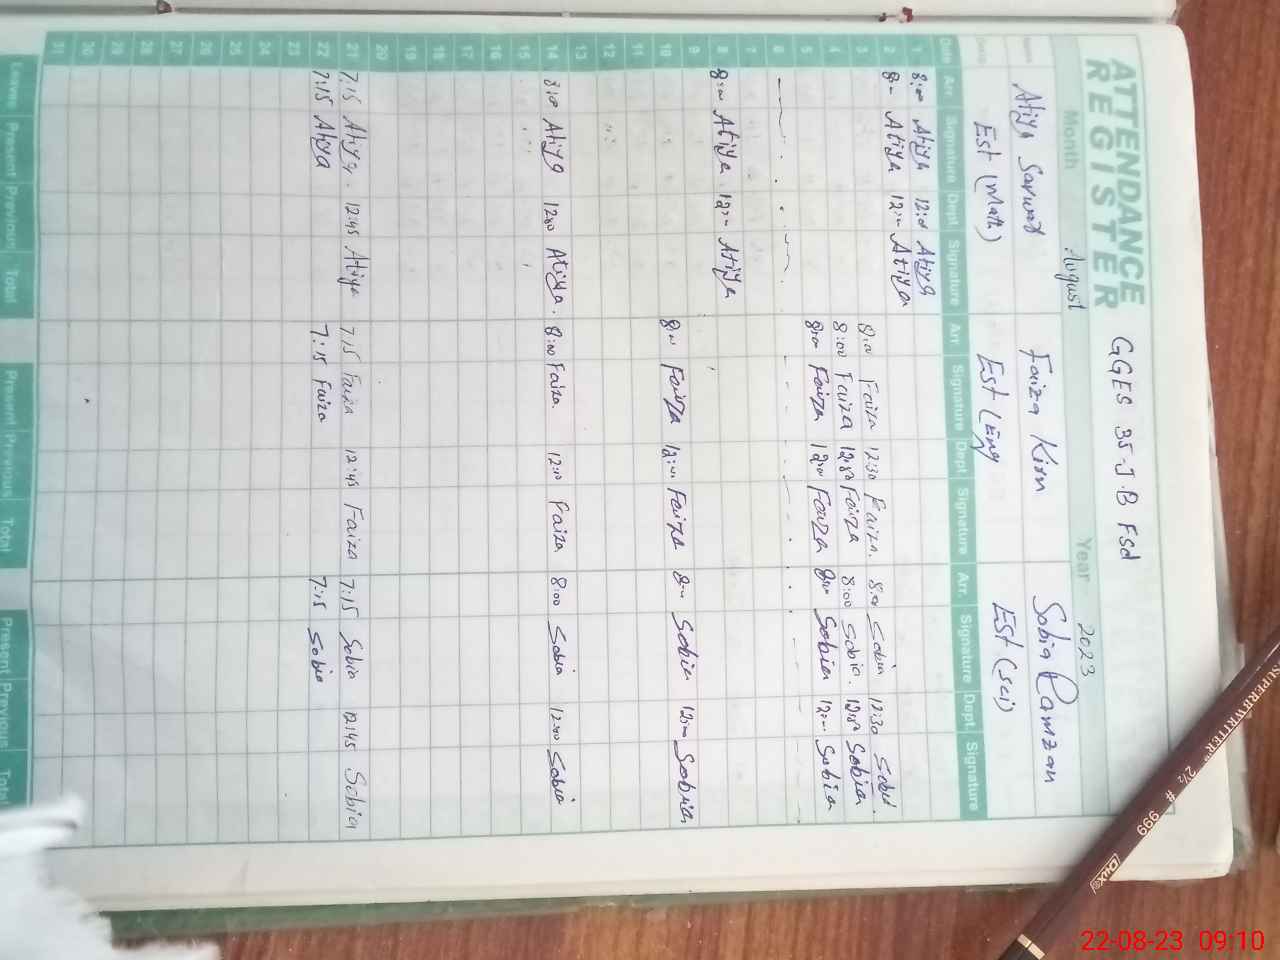 ATTENDANCE REGISTER
GGES 35-J.B Fsd
Month August Year 2023
Name Atiya Sarwat Faiza Kirn Sobia Ramzan
Est (Math) Est (Eng Est (Sci)
Date Arr. Signature Dept. Signature Arr. Signature Dept. Signature Arr. Signature Dept. Signature
1 8:00 Atiya 12:00 Atiya
2 8:00 Atiya 12:00 Atiya
3 8:00 Faiza 12:30 Faiza. 8:00 Sobia 12:30 Sobia.
4 8:00 Faiza 12:30 Faiza 8:00 Sobia. 12:30 Sobia
5 8:00 Faiza 12:00 Faiza 8:00 Sobia 12:00 Sobia
6
7
8 8:00 Atiya. 12:00 Atiya
9
10 8:00 Faiza 12:00 Faiza 8:00 Sobia 12:00 Sobia
11
12
13
14 8:00 Atiya 12:00 Atiya. 8:00 Faiza. 12:00 Faiza 8:00 Sobia 12:00 Sobia
15
16
17
18
19
20
21 7:15 Atiya. 12:45 Atiya 7:15 Faiza 12:45 Faiza 7:15 Sobia 12:45 Sobia
22 7:15 Atiya 7:15 Faiza 7:15 Sobia
23
24
25
26
27
28
29
30
31
Leaves Present Previous Total Present Previous Total Present Previous Total
SUPERBWRITER 2½ # 999 DUX
22-08-23 09:10